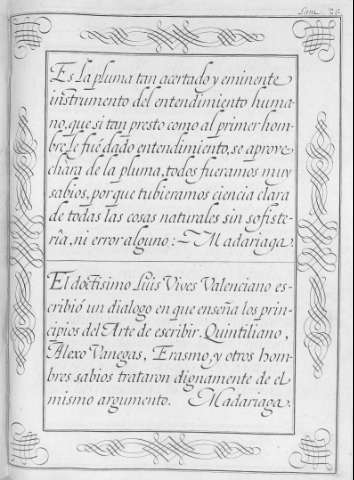 Es la pluma tan acertado y eminente
instrumento del entendimiento huma-
no, que si tan presto como al primer hom-
bre le fué dado entendimiento, se aprove-
chára de la pluma, todos fueramos muy
sabios, porque tubieramos ciencia clara
de todas las cosas naturales sin sofiste-
ría, ni error alguno: Madariaga.
El doctisimo Luis Vives Valenciano es-
cribió un dialogo en que enseña los prin-
cipios del Arte de escribir. Quintiliano,
Alexo Vanegas, Erasmo, y otros hom-
bres sabios trataron dignamente de el
mismo argumento. Madariaga.